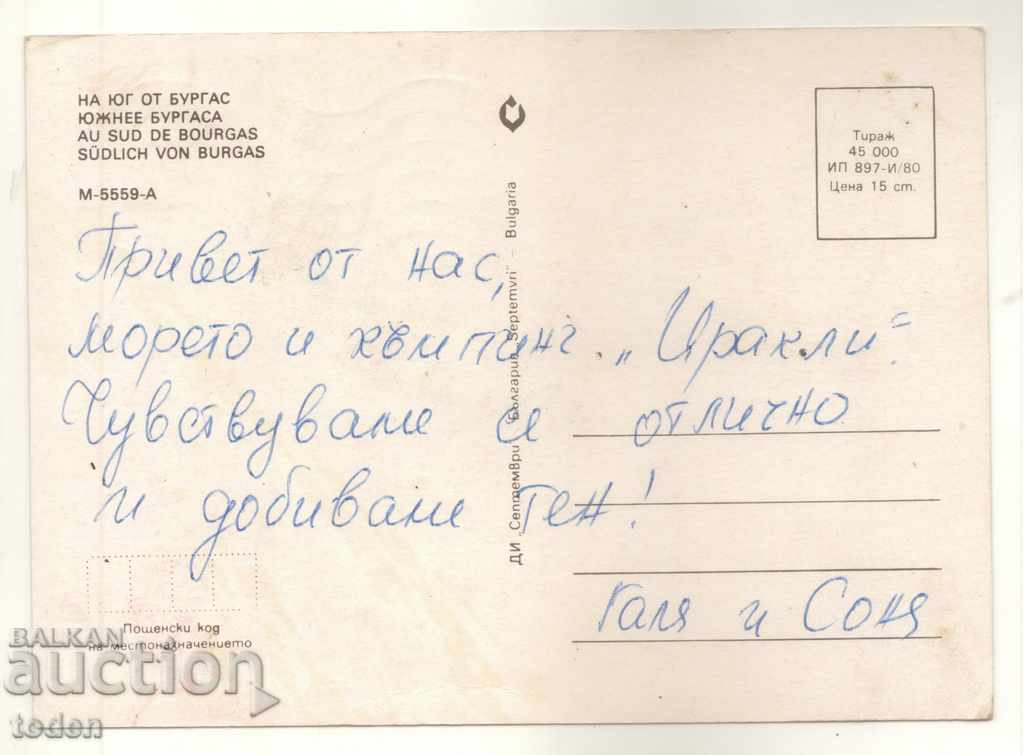 НА ЮГ ОТ БУРГАС
ЮЖНЕЕ БУРГАСА
AU SUD DE BOURGAS
SÜDLICH VON BURGAS
М-5559-А
Тираж
45 000
ИП 897-И/80
Цена 15 ст.
ДИ „Септември" България „Septemvri" - Bulgaria
Привет от нас,
морето и къмпинг „Иракли"
Чувствуваме се отлично
и добиваме тен!
Галя и Соня
Пощенски код
на местоназначението
BALKAN
auction
teden